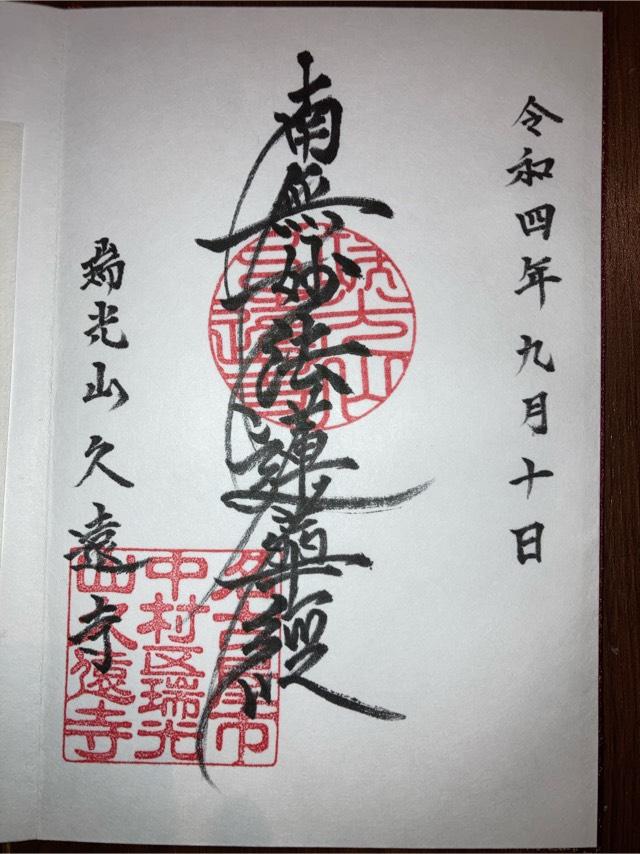 令和四年九月十日
南無妙法蓮華経
瑞光山久遠寺
名古屋市
中村区瑞光
山久遠寺